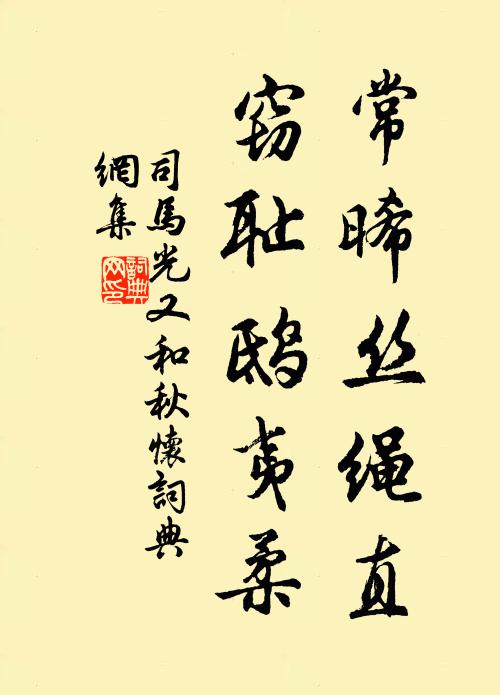 常晞丝绳直
窃耻鸱夷柔
司馬光又和秋懷詞典
網集
詞典網印